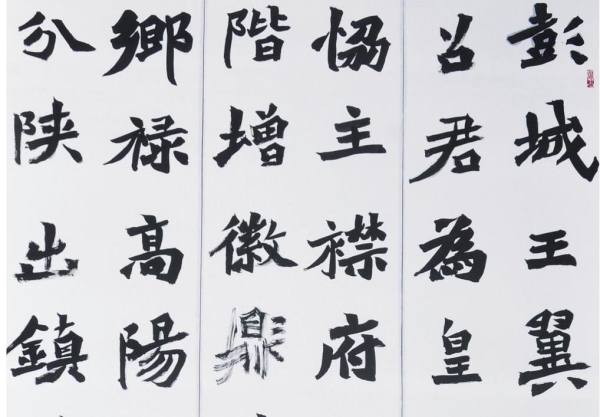 彭城王翼
召君為皇
恊主襟府
階增徽鼎
鄉禄高陽
分陕出鎮